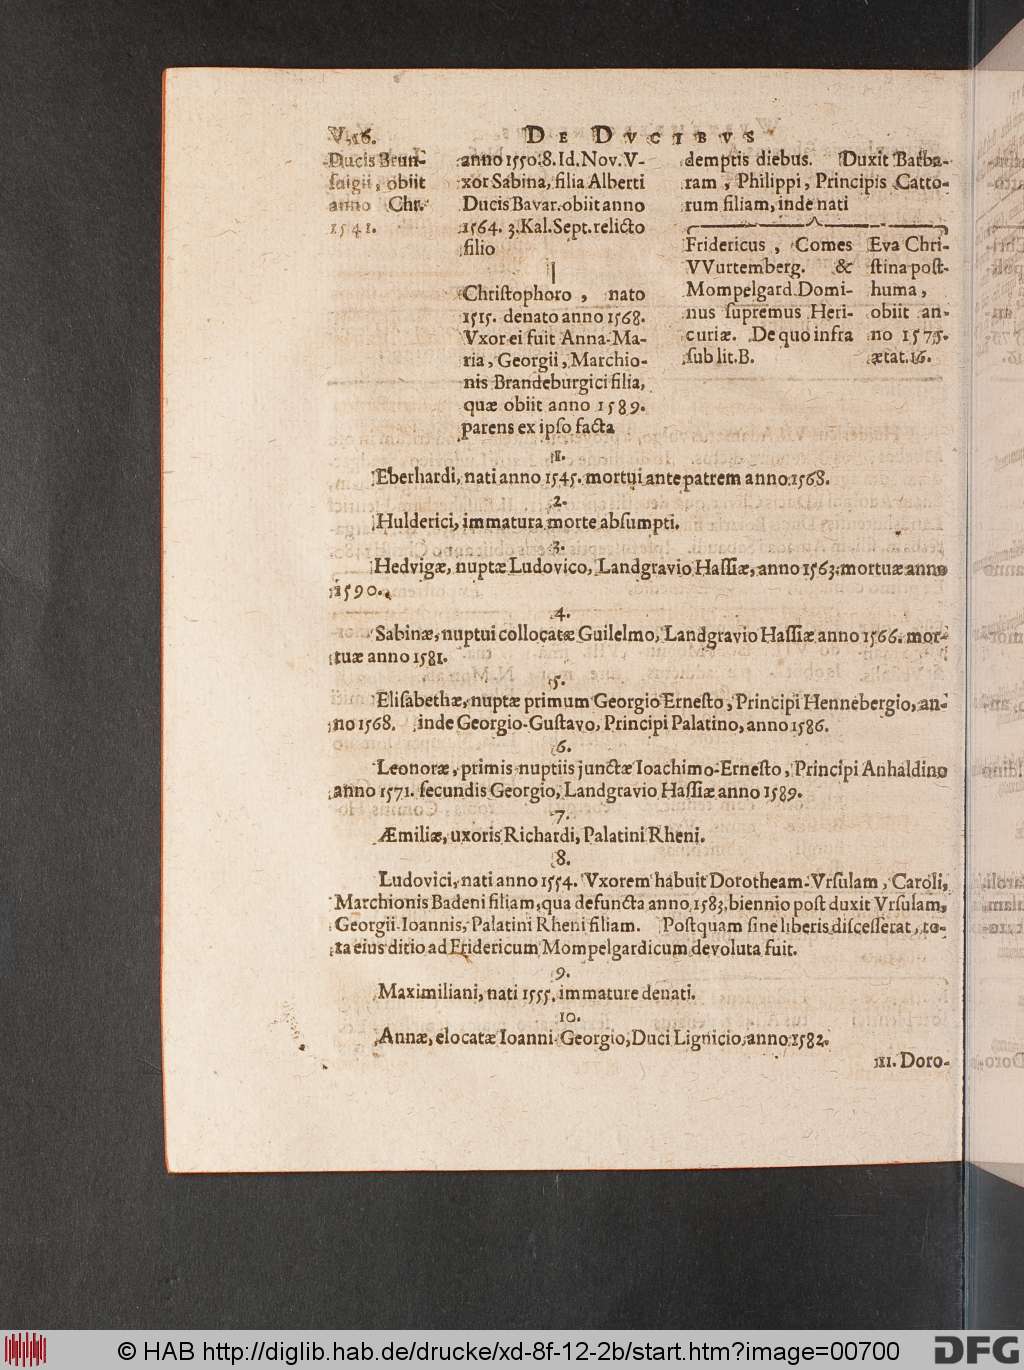 V. 16.
DE DVCIBVS
Ducis Brun-
suigii, obiit
anno Chr.
1541.
anno 1550. 8. Id. Nov. V-
xor Sabina, filia Alberti
Ducis Bavar. obiit anno
1564. 3. Kal. Sept. relicto
filio
Christophoro, nato
1515. denato anno 1568.
Vxor ei fuit Anna-Ma-
ria, Georgii, Marchio-
nis Brandeburgici filia,
quæ obiit anno 1589.
parens ex ipso facta
demptis diebus. Duxit Barba-
ram, Philippi, Principis Catto-
rum filiam, inde nati
Fridericus, Comes
VVurtemberg. &
Mompelgard. Domi-
nus supremus Heri-
curiæ. De quo infra
sub lit. B.
Eva Chri-
stina post-
huma,
obiit an-
no 1575.
ætat. 16.
1.
Eberhardi, nati anno 1545. mortui ante patrem anno 1568.
2.
Hulderici, immatura morte absumpti.
3.
Hedvigæ, nuptæ Ludovico, Landgravio Hassiæ, anno 1563. mortuæ anno
1590.
4.
Sabinæ, nuptui collocatæ Guilelmo, Landgravio Hassiæ anno 1566. mor-
tuæ anno 1581.
5.
Elisabethæ, nuptæ primum Georgio Ernesto, Principi Hennebergio, an-
no 1568. inde Georgio-Gustavo, Principi Palatino, anno 1586.
6.
Leonoræ, primis nuptiis junctæ Ioachimo-Ernesto, Principi Anhaldino
anno 1571. secundis Georgio, Landgravio Hassiæ anno 1589.
7.
Æmiliæ, uxoris Richardi, Palatini Rheni.
8.
Ludovici, nati anno 1554. Vxorem habuit Dorotheam-Vrsulam, Caroli,
Marchionis Badeni filiam, qua defuncta anno 1583. biennio post duxit Vrsulam,
Georgii-Ioannis, Palatini Rheni filiam. Postquam sine liberis discesserat, to-
ta eius ditio ad Fridericum Mompelgardicum devoluta fuit.
9.
Maximiliani, nati 1555. immature denati.
10.
Annæ, elocatæ Ioanni-Georgio, Duci Lignicio, anno 1582.
11. Doro-
© HAB http://diglib.hab.de/drucke/xd-8f-12-2b/start.htm?image=00700
DFG